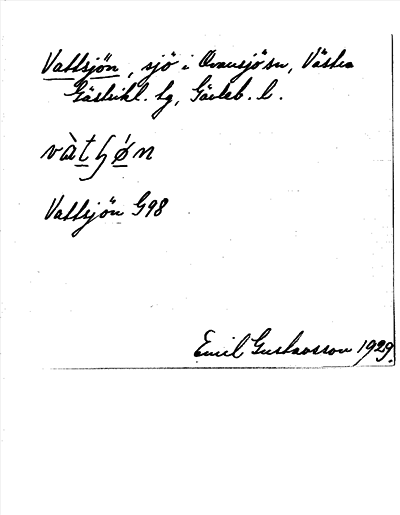 Vattsjön, sjö i Ovansjö sn, Västra
Gästrikl. tg, Gävleb. l.
vàtʃø̀n
Vattsjön G98
Emil Gustavsson 1929.